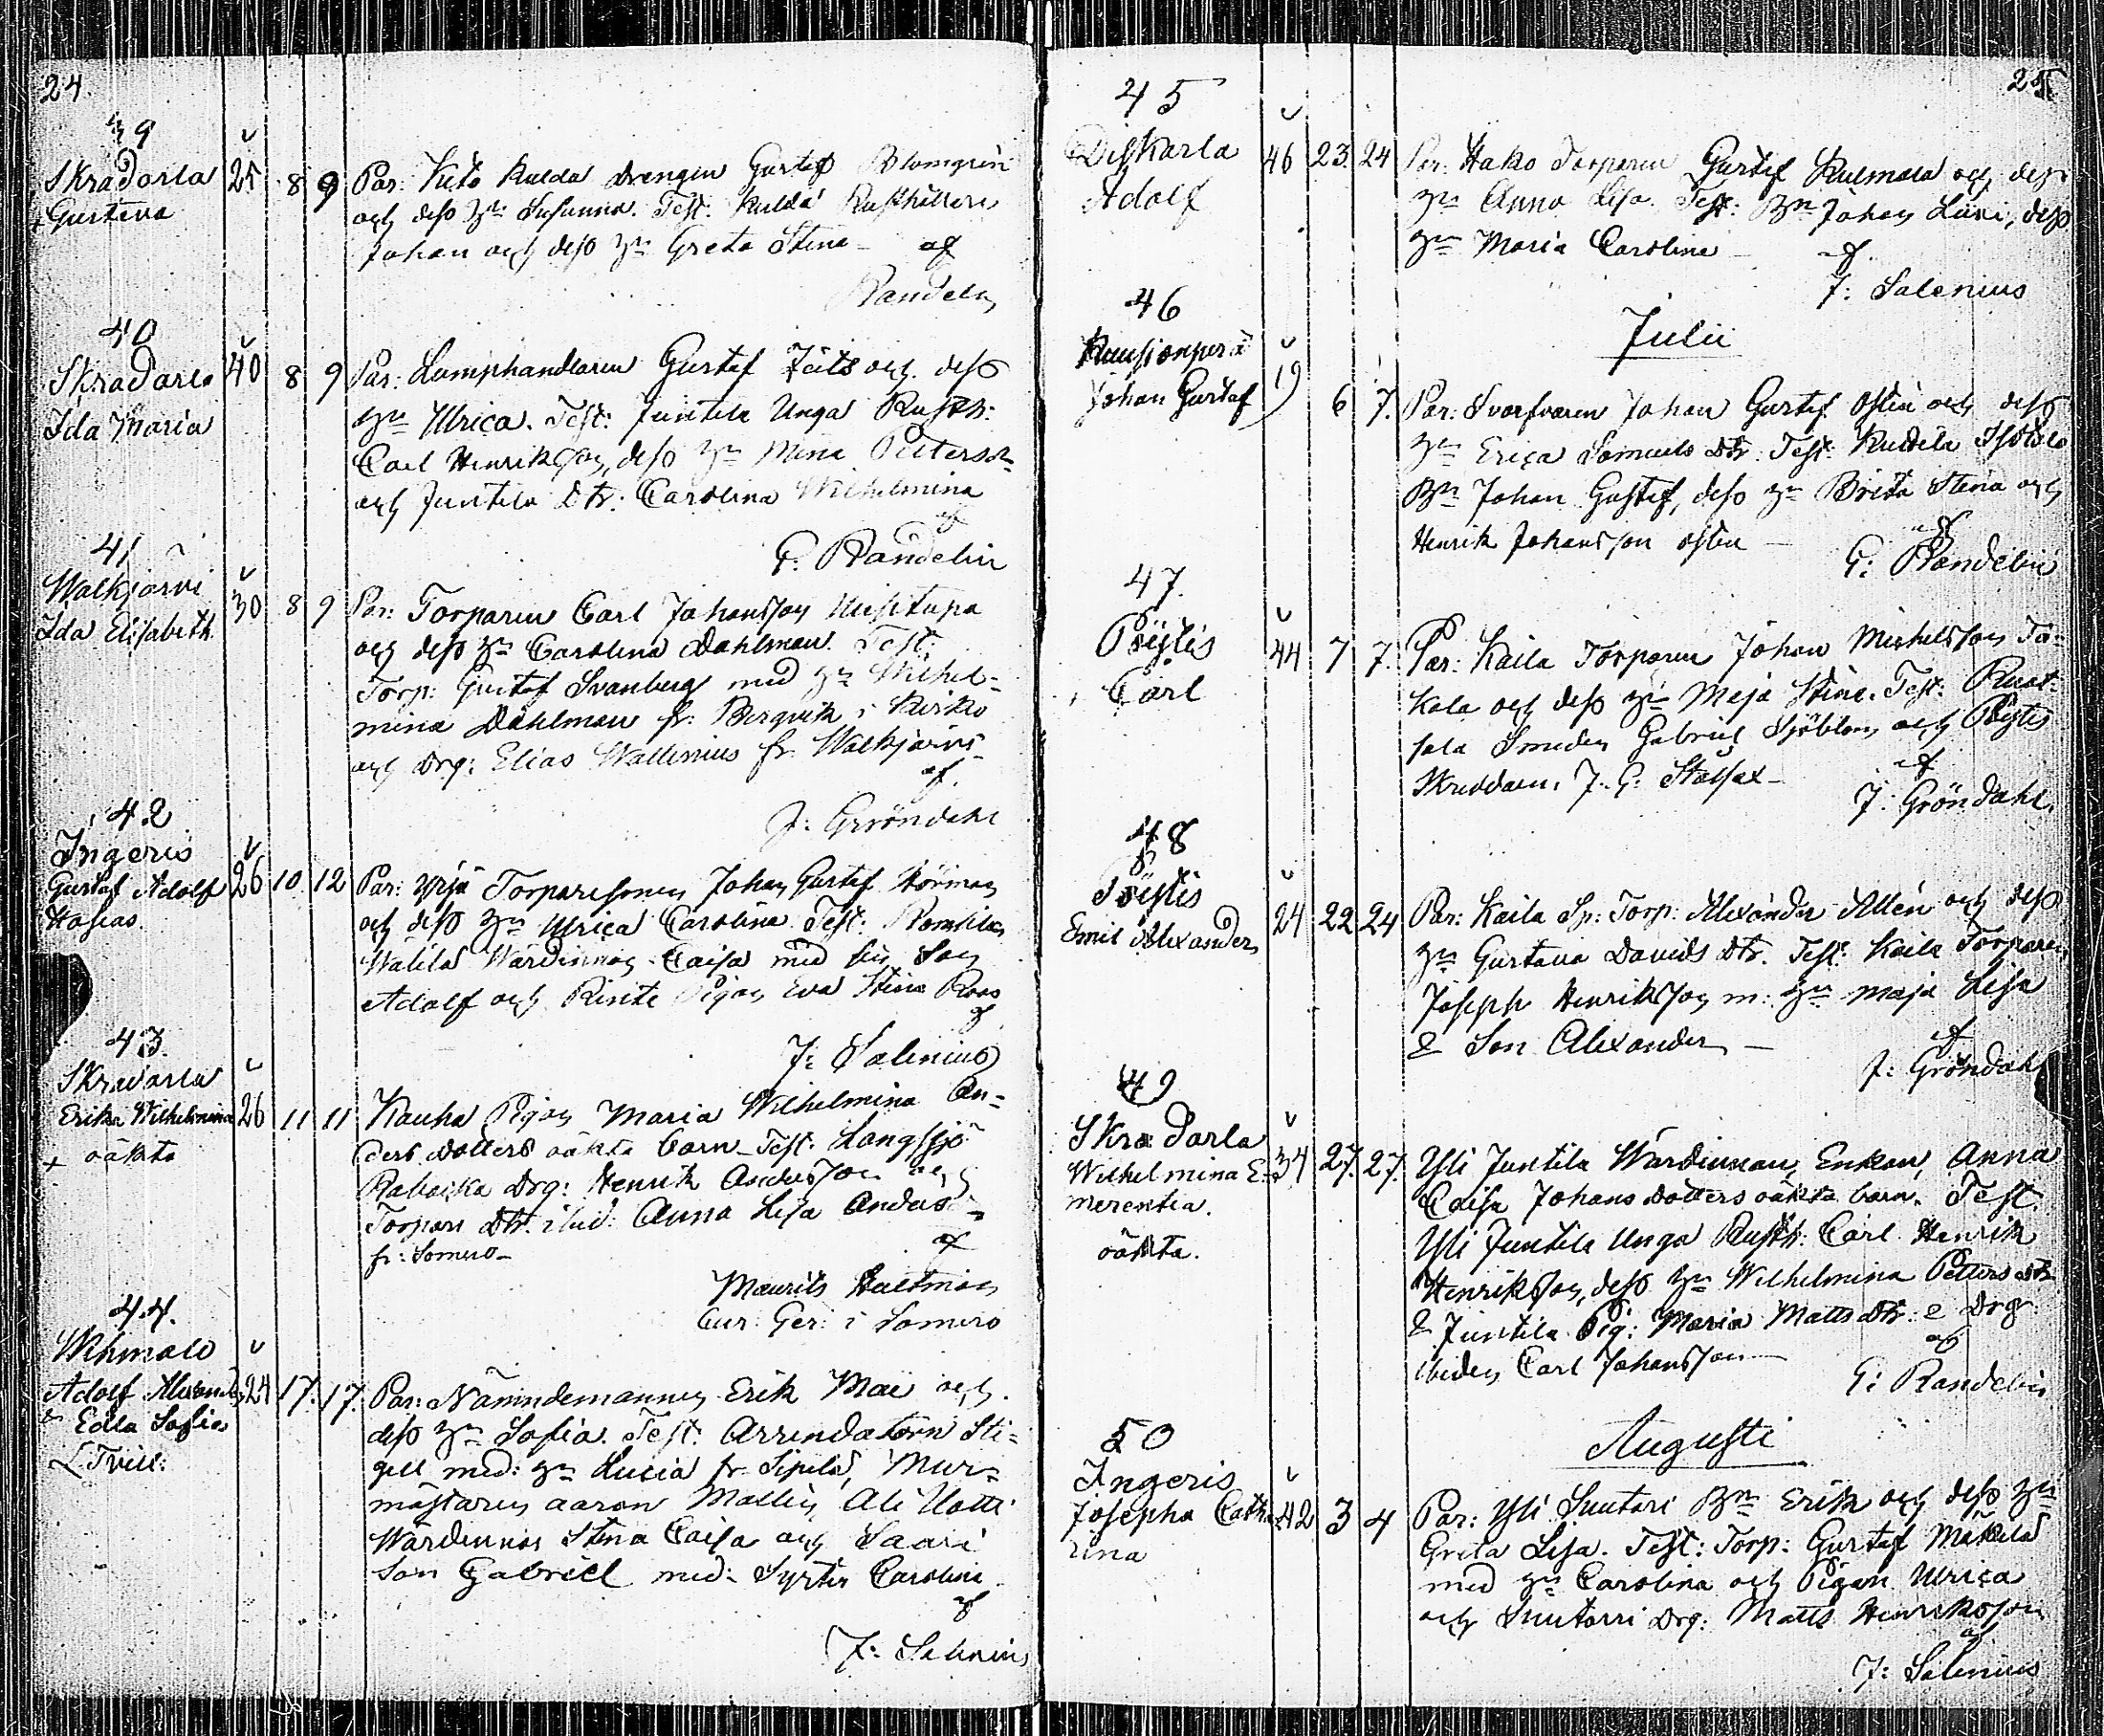 24.
39
Skradarla 25 8 9 Par: Kuto Kulda Drengen Gustaf Blomgrén
+ Gustava och dess Hu Susanna. Test: Kulda Rusthållare
Johan och dess Hu Greta Stina af
Randelin
40
Skradarla 40 8 9 Par: Lumphandlaren Gustaf och dess
Ida Maria Hu Ulrica. Test: Juntila Unga Rusth:
Carl Henriksson, dess Hu Mina Pettersdr
och Juntila Dtr: Carolina Wilhelmina
af
G: Randelin
41
Walkjärvi 30 8 9 Par: Torparen Carl Johansson Uusitupa
Ida Elisabeth och dess Hu Carolina Dahlman. Test:
Torp: Gustaf Svanberg med Hu Wilhel=
mina Dahlman fr: Bergvik i Kisko
och Drg: Elias Wallenius fr. Walkjärvi
af.
J: Gröndahl
42
Ingeris
Gustaf Adolf 26 10 12 Par: Yrjä Torparesonen Johan Gustaf Hörman
och dess Hu Ulrica Carolina. Test:
Wärdinnan Caisa med sin Son
Adolf och Rinte Pigan Eva Stina Roos
af
J: Salenius
43.
Skradarla
Erika Wilhelmina 26 11 11 Kauha Pigan Maria Wilhelmina An=
+ oäkta ders Dotters oäkta barn. Test: Långsjö
Drg: Henrik Andersson och
Torpare Dtr. Anna Lisa Anders
fr: Somero af
Maurits Hartman
Cur: Ger: i Somero
44.
Wihmalo
Adolf Alexander 24 17. 17. Par: Nämndemannen Erik Mai och
& Edla Sofia dess Hu Sofia. Test: Arrendatorn Sti=
Tvill: gell med: Hu Lucia fr. Sipilä, Mur=
mästaren Aaron Mallin, Ali
Wärdinnan Stina Caisa och Saari
Son Gabriel med: Syster Carolina
af
J: Salenius
25.
45
Diskarla 46 23. 24 Par: Hako Torparen Gustaf Kulmala och dess
Adolf Hu Anna Lisa. Test: Bn Johan dess
Hu Maria Carolina af.
J: Salenius
46
Julii
Johan Gustaf 19 6 7. Par: Svarfvaren Johan Gustaf Östen och dess
Hu Erica Samuels Dtr. Test: Isotalo
Bn Johan Gustaf, dess Hu Brita Stina och
Henrik Johansson Östen af
G: Randelin
47.
Pöytis 44 7 7. Par: Kaila Torparen Johan Michelsson
Carl och dess Hu Maja Stina. Test:
Smeden Gabriel Sjöblom och Pöytis
Skreddaren J. G: Stålfax af
J: Gröndahl.
48
Pöytis
Emil Alexander 24 22 24 Par: Kaila Sp: Torp: Alexander Allén och dess
Hu Gustava Davids Dtr. Test: Kaila Torparen
Joseph Henriksson m: Hu Maja Lisa
& Son Alexander af
J: Gröndahl
49
Skradarla
Wilhelmina E= 34 27. 27. Yli Juntila Wärdinnan, Enkan, Anna
merentia. Caisa Johans Dotters oäkta barn. Test.
oäkta. Yli Juntila Unga Rusth: Carl Henrik
Henriksson, dess Hu Wilhelmina Petters dtr
& Juntila Pig: Maria Matts Dtr. & Drg
Carl Johansson af
G: Randelin
50 Augusti
Ingeris
Josepha Catha 42 3 4 Par: Yli Suutari Bn Erik och dess Hu
rina Greta Lisa. Test: Torp: Gustaf Mäkilä
med Hu Carolina och Pigan Ulrica
och Suutarri Drg: Matts Henriksson
af
J: Salenius